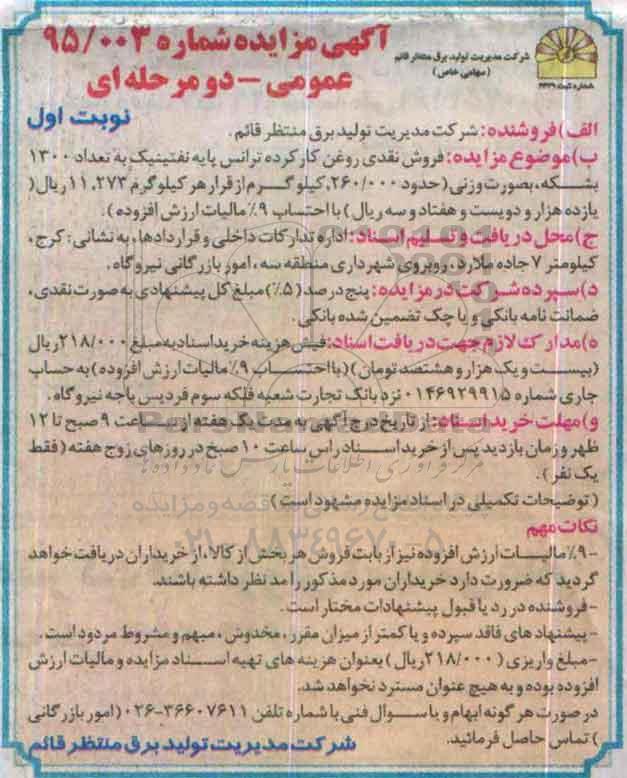 آگهی مزایده شماره ۹۵/۰۰۳
عمومی - دو مرحله ای
نوبت اول
شرکت مدیریت تولید برق منتظر قائم
(سهامی خاص)
شماره ثبت ۴۴۳۹
الف) فروشنده: شرکت مدیریت تولید برق منتظر قائم.
ب) موضوع مزایده: فروش نقدی روغن کارکرده ترانس پایه نفتینیک به تعداد ۱۳۰۰
بشکه، بصورت وزنی (حدود ۲۶۰/۰۰۰ کیلوگرم از قرار هر کیلوگرم ۱۱,۲۷۳ ریال (
یازده هزار و دویست و هفتاد و سه ریال) با احتساب ۹٪ مالیات ارزش افزوده).
ج) محل دریافت و تسلیم اسناد: اداره تدارکات داخلی و قراردادها، به نشانی: کرج،
کیلومتر ۷ جاده ملارد، روبروی شهرداری منطقه سه، امور بازرگانی نیروگاه.
د) سپرده شرکت در مزایده: پنج درصد (۵٪) مبلغ کل پیشنهادی به صورت نقدی،
ضمانت نامه بانکی و یا چک تضمین شده بانکی.
ه) مدارک لازم جهت دریافت اسناد: فیش هزینه خرید اسناد به مبلغ ۲۱۸/۰۰۰ ریال
(بیست و یک هزار و هشتصد تومان) (با احتساب ۹٪ مالیات ارزش افزوده) به حساب
جاری شماره ۰۱۴۶۹۲۹۹۱۵ نزد بانک تجارت شعبه فلکه سوم فردیس باجه نیروگاه.
و) مهلت خرید اسناد: از تاریخ درج آگهی به مدت یک هفته از ساعت ۹ صبح تا ۱۲
ظهر و زمان بازدید پس از خرید اسناد راس ساعت ۱۰ صبح در روزهای زوج هفته (فقط
یک نفر).
(توضیحات تکمیلی در اسناد مزایده مشهود است)
نکات مهم
-۹٪ مالیات ارزش افزوده نیز از بابت فروش هر بخش از کالا، از خریداران دریافت خواهد
گردید که ضرورت دارد خریداران مورد مذکور را مد نظر داشته باشند.
-فروشنده در رد یا قبول پیشنهادات مختار است.
-پیشنهاد های فاقد سپرده و یا کمتر از میزان مقرر، مخدوش، مبهم و مشروط مردود است.
-مبلغ واریزی (۲۱۸/۰۰۰ ریال) بعنوان هزینه های تهیه اسناد مزایده و مالیات ارزش
افزوده بوده و به هیچ عنوان مسترد نخواهد شد.
در صورت هر گونه ابهام و یا سوال فنی با شماره تلفن ۳۶۶۰۷۶۱۱-۰۲۶ (امور بازرگانی
) تماس حاصل فرمائید.
شرکت مدیریت تولید برق منتظر قائم
۰۲۱-۸۸۳۴۹۶۷۰-۵